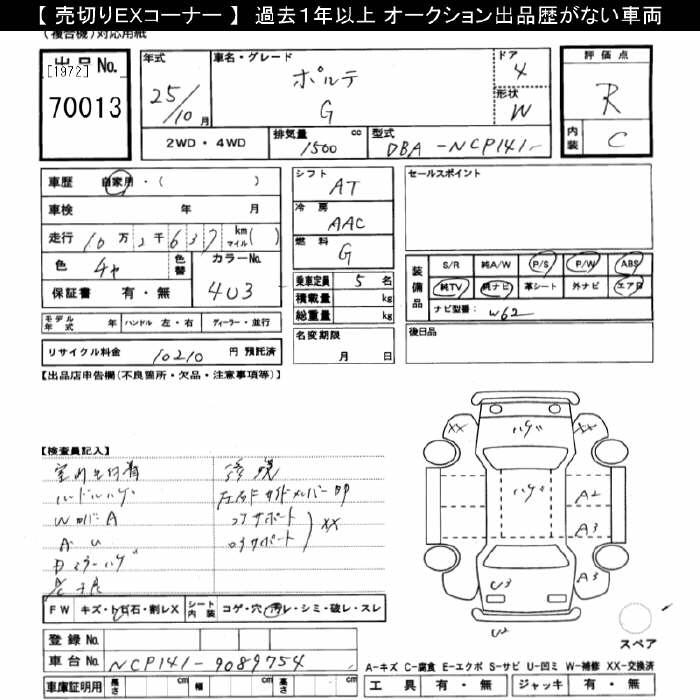 【 売切りEXコーナー 】 過去１年以上 オークション出品歴がない車両
(複合機)対応用紙
出品No.
[1972]
70013
年式
25/10月
車名・グレード
ポルテ
G
ドア
4
形状
W
評価点
R
内装
C
2WD・4WD
排気量 1500 cc
型式 DBA -NCP141-
車歴 自家用・( )
車検 年 月
走行 10万2千637 km マイル( )
色
色替
カラーNo.
4U3
保証書 有・無
モデル年式 年 ハンドル 左・右 ディーラー・並行
リサイクル料金 10210 円 預託済
シフト
AT
冷房
AAC
燃料
G
乗車定員 5 名
積載量 kg
総重量 kg
名変期限
月 日
セールスポイント
装備品
S/R 純A/W P/S P/W ABS
純TV 純ナビ 革シート 外ナビ エアB
ナビ型番: W62
後日品
【出品店申告欄(不良箇所・欠品・注意事項等)】
【検査員記入】
ハンドルハゲ
W カバーA
A U
コアサポート
XX
FW キズ・トビ石・割レX シート内装 コゲ・穴・汚レ・シミ・破レ・スレ
登録No.
車台No. NCP141-9089754
車庫証明用 長さ cm 幅 cm 高さ cm
XX
ハゲ
XX
ハゲ
A2
A3
A3
U3
U2
スペア
A-キズ C-腐食 E-エクボ S-サビ U-凹ミ W-補修 XX-交換済
工具 有・無 ジャッキ 有・無